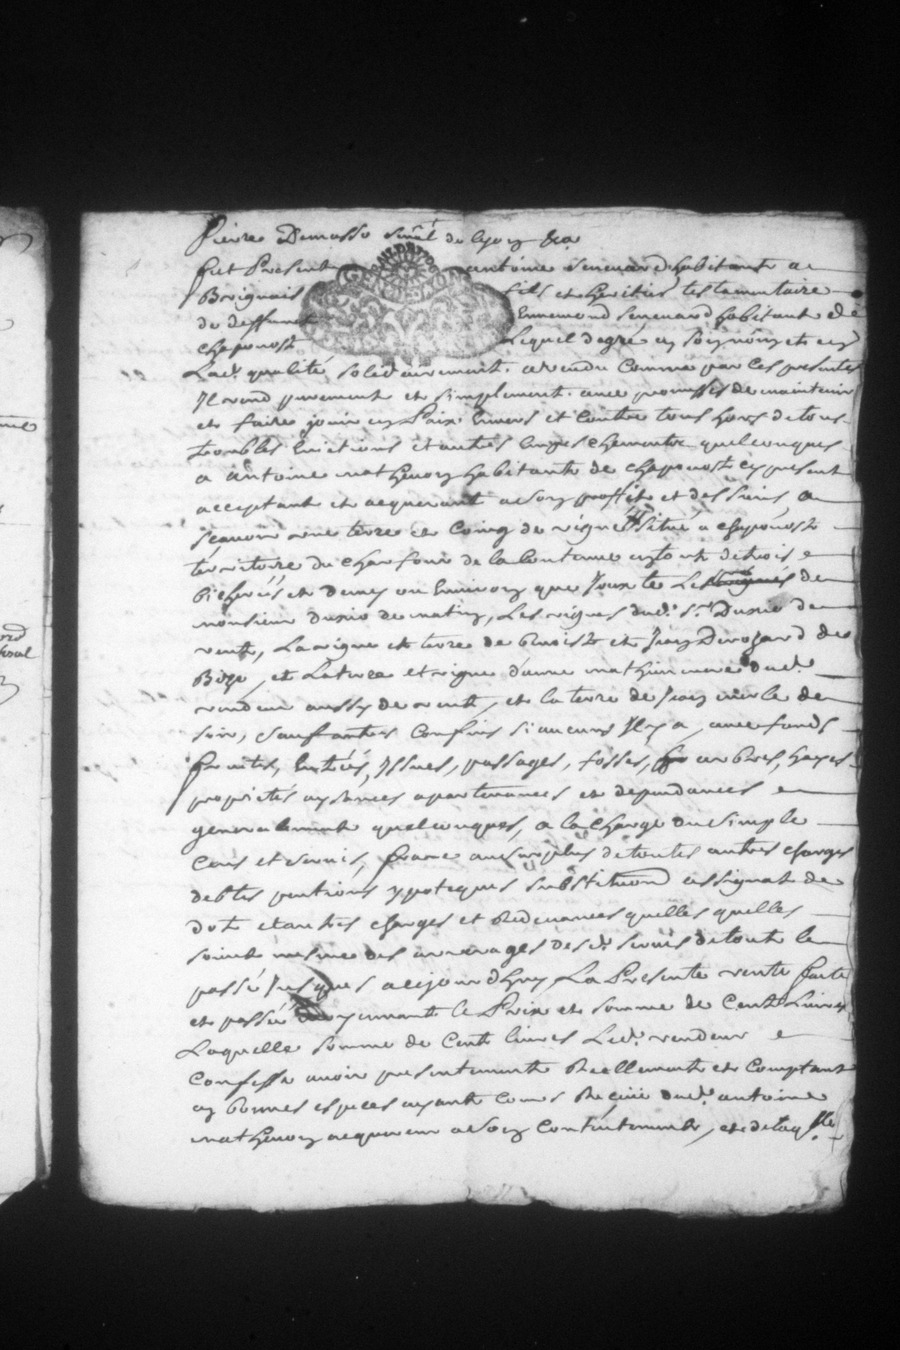 Pierre Demasso senal de lyon &ca
fut Present antoine seneuard habitant a
Brignais fils et heritier testamentaire
de deffunct Ennemond seneuard habitant de
chaponost Lequel de gré en son nom et en
Lad. qualité solidairement a vendu comme par ces presentes
Il vend purement et simplement avec promesses de maintenir
et faire jouir en Paix Envers et Contre tous hors de tous
troubles Evictions et autres empeschements quelconques
a antoine mathevon habitant de chaponost cy present
acceptant et acquerant a son proffit et des siens, a
sçavoir une terre et Coing de vigne situé a chaponost
territoire du charfour de la contenue en tout de trois
bicherées et demy ou Environ que Jouxte Les vignes de
monsieur de matin, Les vignes dud. sr. de
vent, La vigne et terre de benoist et Jean de
Bize, et La terre et vigne d'anne mathieu dud.
vendeur aussy de vent, et la terre de Jean merle de
soir, sauf autres Confins si aucuns Il y a, avec fonds
fruits, Entrées, Issues, passages, fosses, arbres, hayes
proprietés aysances apartenances et dependances
generalement quelconques, a la charge du simple
Cens et servis, franc au surplus de toutes autres charges
debtes pentions ypoteques substitution assignat de
dot et autres charges et Redevances quelles quelles
soient mesme des arrerages desd. servis de tout le
passé Jusques a cejourdhuy La Presente vente faitte
et passée moyennant le Prix et somme de Cent Livres
Laquelle somme de Cent livres Led. vendeur
Confesse avoir presentement Reellement et comptant
en bonnes especes ayant cours Reçüe dud. antoine
mathevon acquereur a son Contentement, et de laqlle